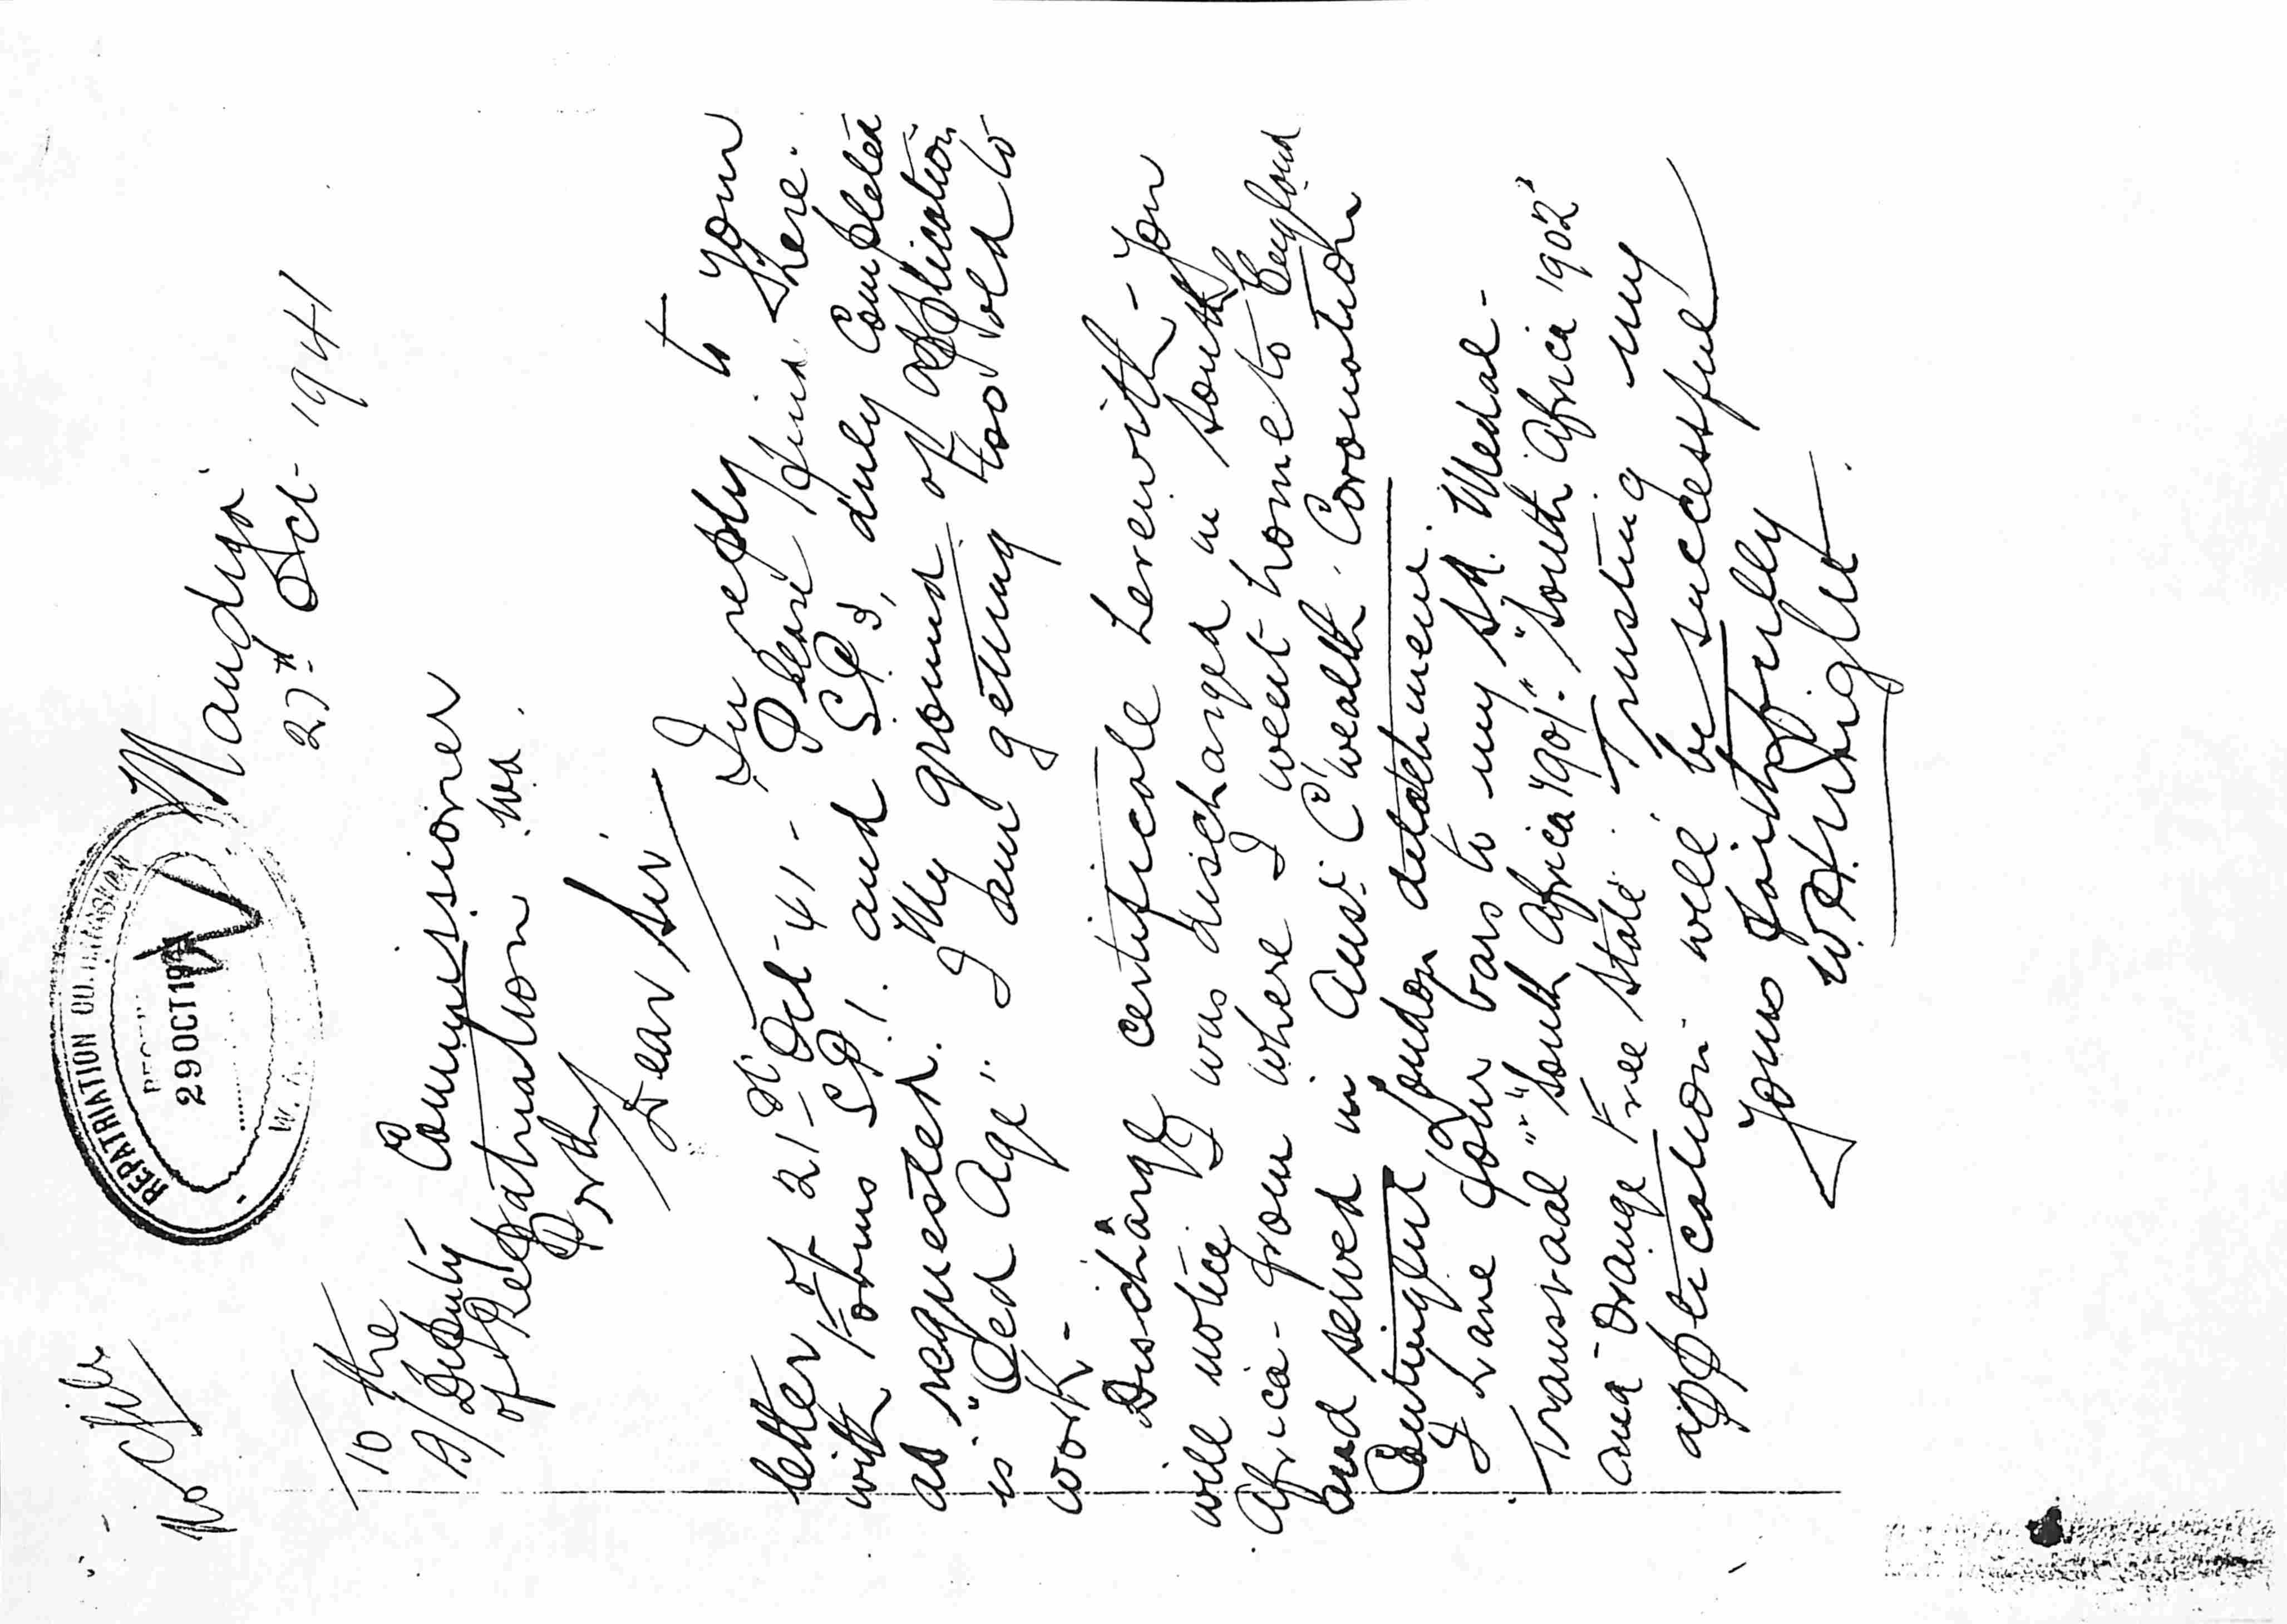 No File
REPATRIATION COMMISSION
29 OCT 194
W.A.
Mandya
27th Oct - 1941
To the
D/Deputy Commissioner
of Repatriation W.A.
Perth
Dear Sir
In reply to your
letter of 21st Oct - 41 - Please find there
with Forms SP1. and SP3, duly completed
as requested. My ground of application
is "Old Age". I am getting too old to
work -
Discharge certificate herewith - You
will notice I was discharged in South
Africa - from where I went home to England
and served in Aust C'wealth Coronation
Contingent London detachment.
I have four bars to my SA. Medal -
Transvaal "" South Africa 1901." "South Africa 1902"
and Orange Free State. Trusting my
application will be successful
Yours faithfully
W.H. Wright